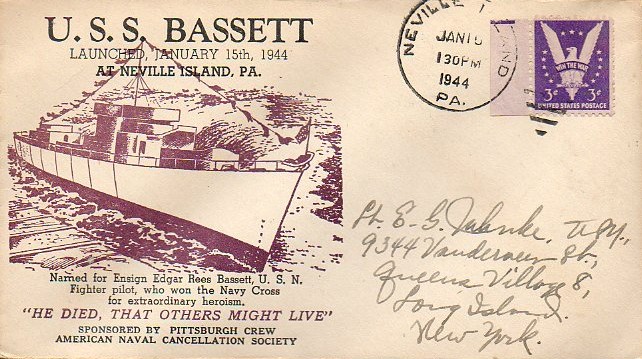 U.S.S. BASSETT
LAUNCHED, JANUARY 15th, 1944
AT NEVILLE ISLAND, PA.
NEVILLE LAND
JAN 15
130PM
1944
PA.
WIN THE WAR
3¢ 3¢
UNITED STATES POSTAGE
Lt. E. G. Jahnke,
9344 Vanderveer St.,
Queens Village 8,
Long Island.
New York.
Named for Ensign Edgar Rees Bassett, U. S. N.
Fighter pilot, who won the Navy Cross
for extraordinary heroism.
"HE DIED, THAT OTHERS MIGHT LIVE"
SPONSORED BY PITTSBURGH CREW
AMERICAN NAVAL CANCELLATION SOCIETY